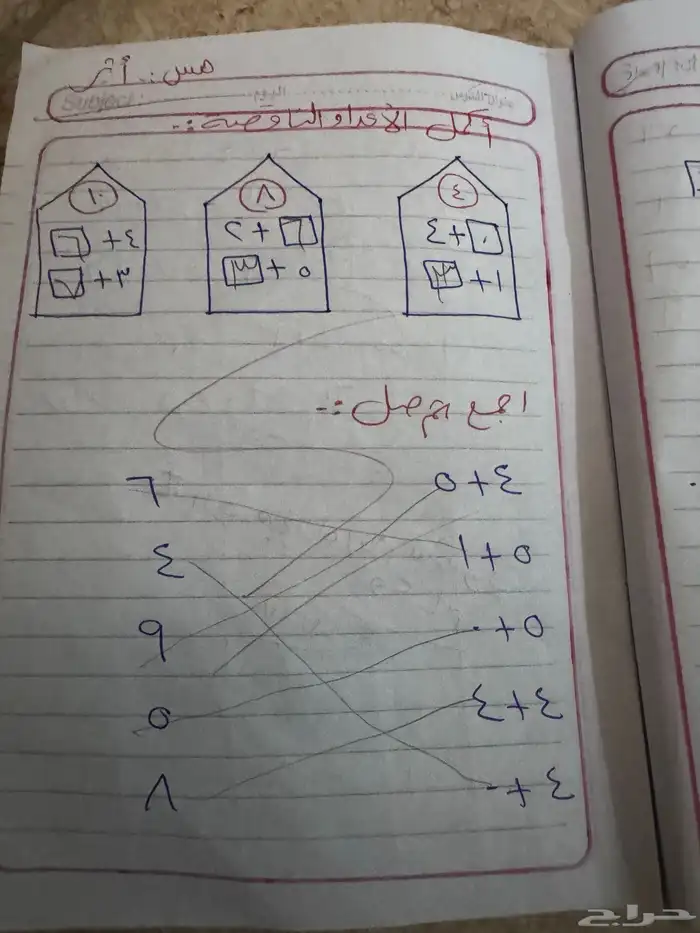 مس: أثر
Subject:
أكمل الأعداد الناقصة:-
٤ ٨ ١٠
٤+٠ ٢+٦ ٤+٦
١+٣ ٥+٣ ٣+٧
اجمع ثم صل:-
٤+٥ ٦
٥+١ ٤
٥+٠ ٩
٤+٤ ٥
٤+٠ ٨
حراج